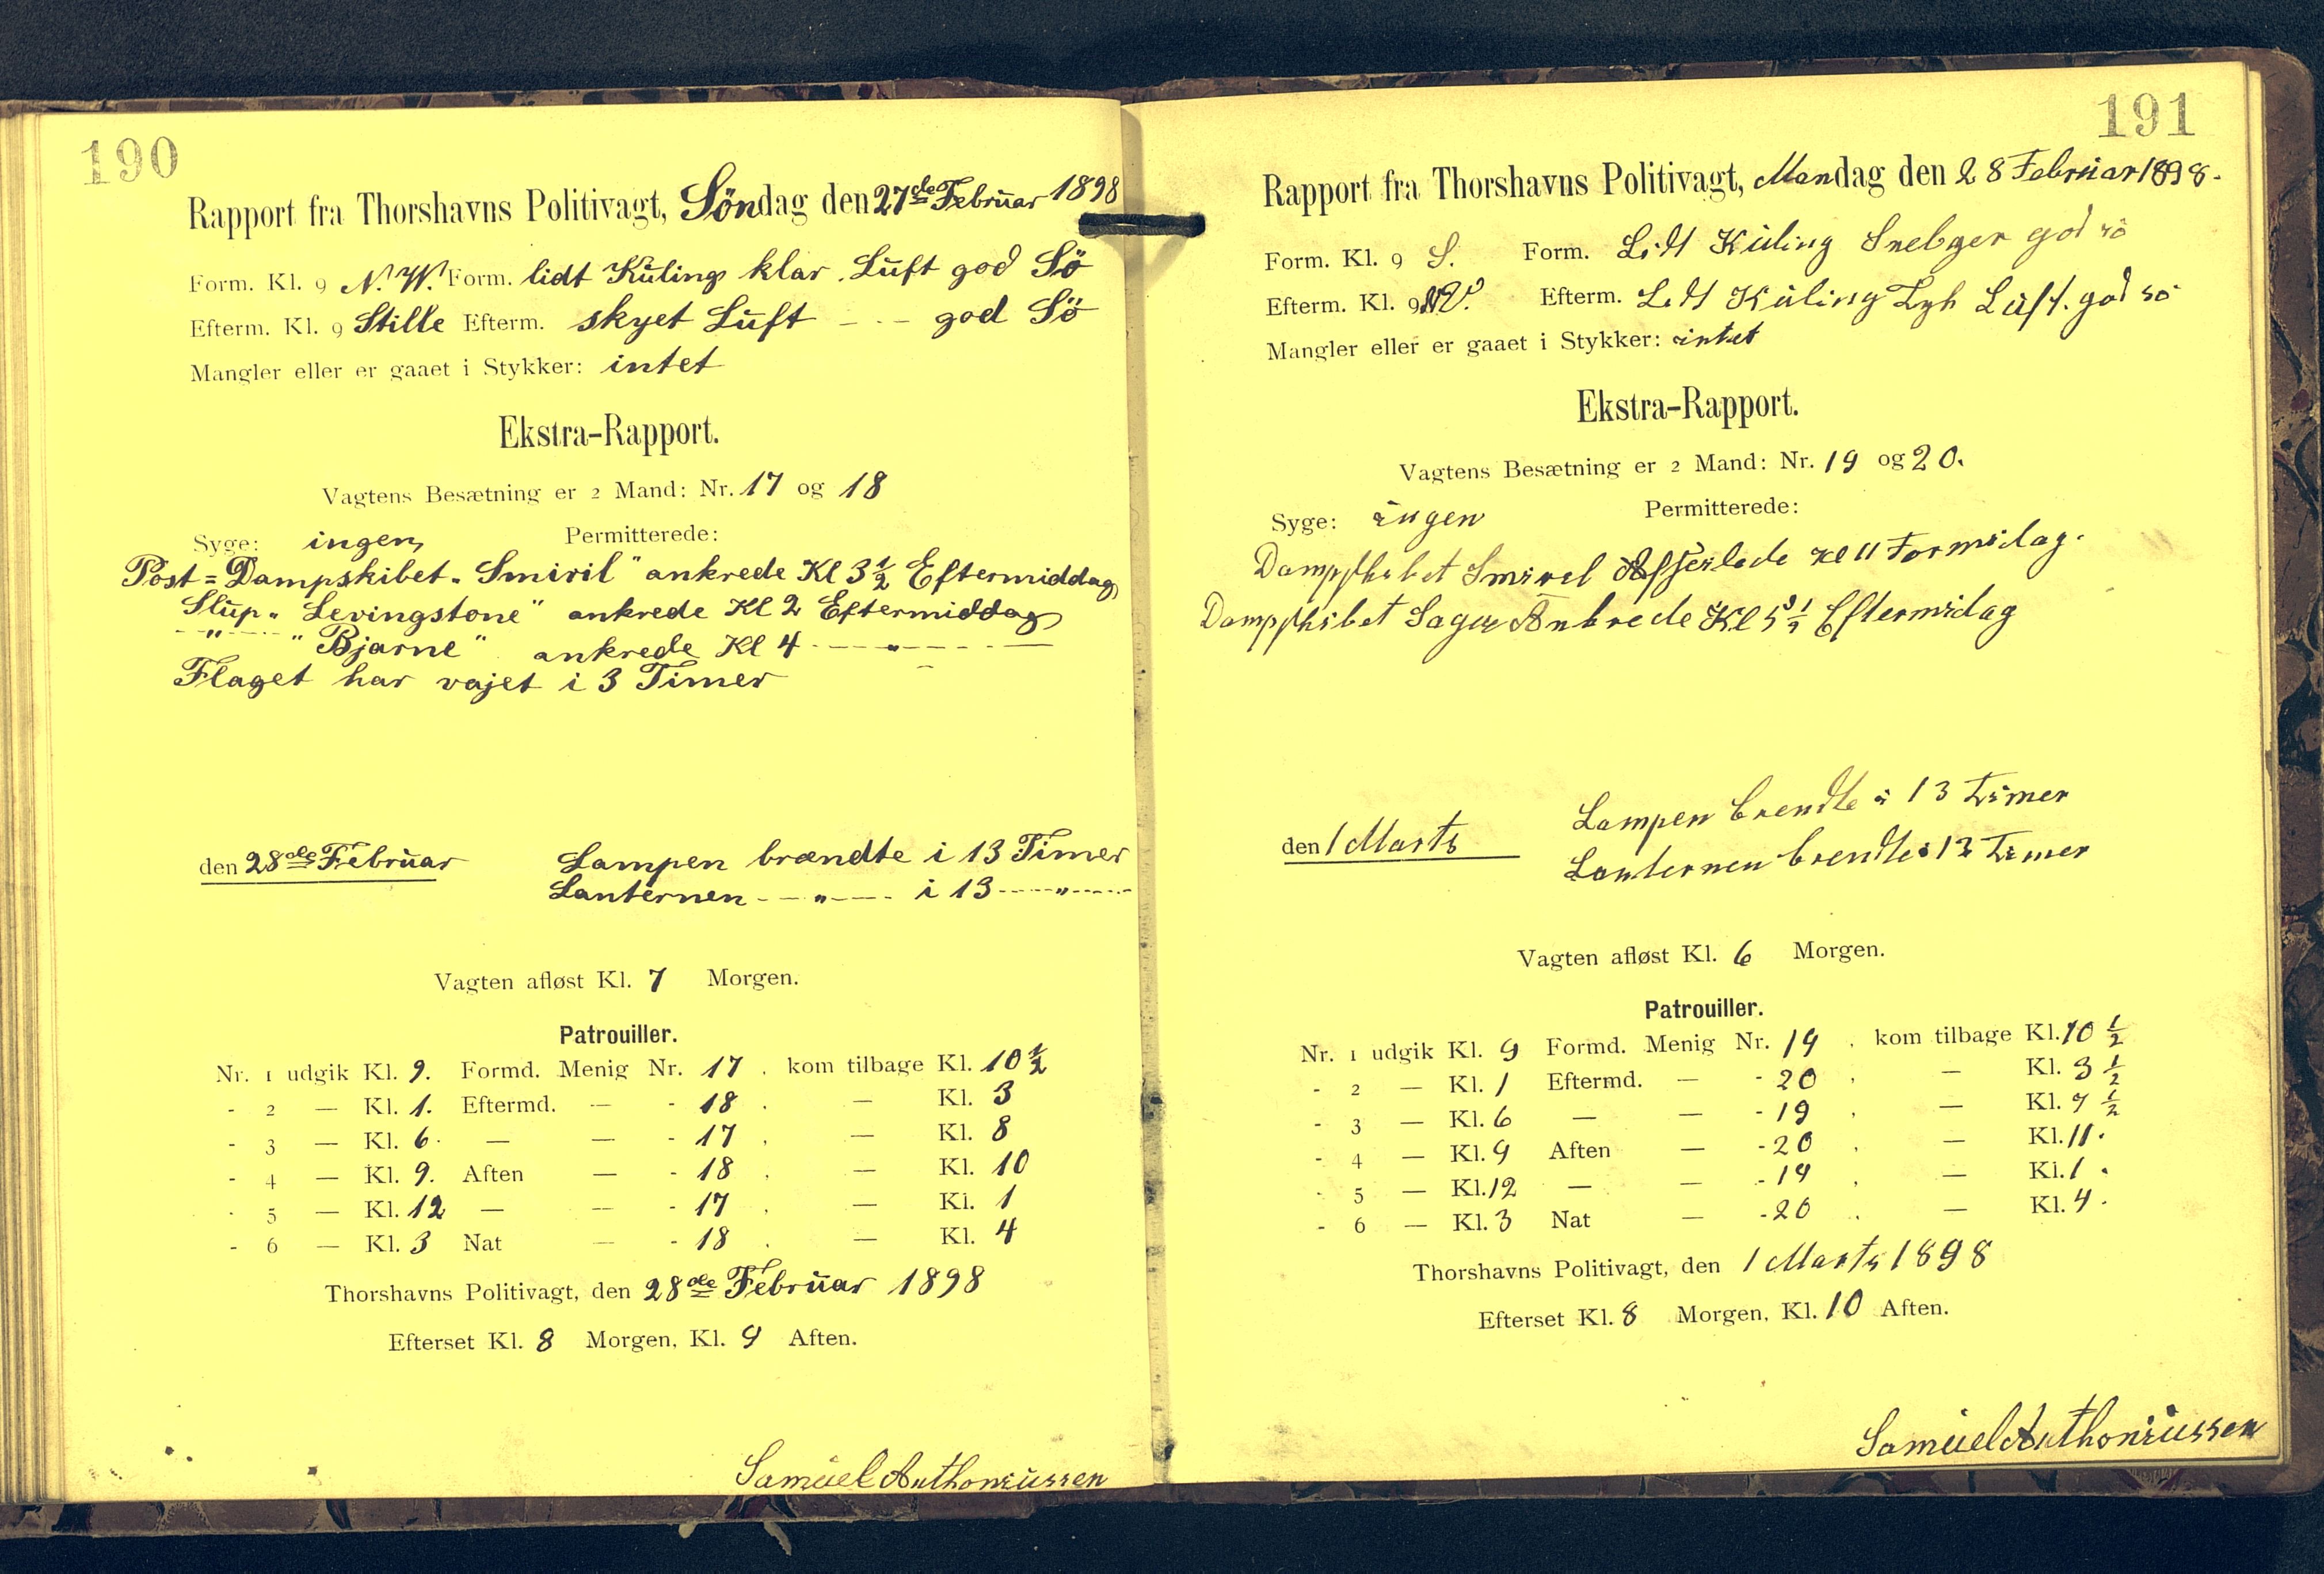 190
Rapport fra Thorshavns Politivagt, Söndag den 27de Februar 1898
Form. Kl. 9 N.W. Form. lidt Kuling klar Luft god Sö
Efterm. Kl. 9 Stille Efterm. skyet Luft - - - god Sö
Mangler eller er gaaet i Stykker: intet
Ekstra-Rapport.
Vagtens Besætning er 2 Mand: Nr. 17 og 18
Syge: ingen Permitterede:
Post=Dampskibet „Smiril" ankrede Kl 3½ Eftermiddag
Slup „Levingstone" ankrede Kl 2 Eftermiddag
- " - "Bjarne" ankrede Kl 4 - " -
Flaget har vajet i 3 Timer
den 28de Februar Lampen brændte i 13 Timer
Lanternen - " - i 13 - " -
Vagten afløst Kl. 7 Morgen.
Patrouiller.
Nr. 1 udgik Kl. 9. Formd. Menig Nr. 17 . kom tilbage Kl. 10½
- 2 — Kl. 1. Eftermd. — - 18 . — Kl. 3
- 3 — Kl. 6. — — - 17 . — Kl. 8
- 4 — Kl. 9. Aften — - 18 . — Kl. 10
- 5 — Kl. 12 — — - 17 . — Kl. 1
- 6 — Kl. 3 Nat — - 18 . — Kl. 4
Thorshavns Politivagt, den 28de Februar 1898
Efterset Kl. 8 Morgen, Kl. 9 Aften.
Samuel Anthoniussen
191
Rapport fra Thorshavns Politivagt, Mandag den 28 Februar 1898.
Form. Kl. 9 S. Form. Lidt Kuling Snebger god sö
Efterm. Kl. 9 NV. Efterm. Lidt Kuling Luft. god sö
Mangler eller er gaaet i Stykker: intet
Ekstra-Rapport.
Vagtens Besætning er 2 Mand: Nr. 19 og 20.
Syge: ingen Permitterede:
Dampskibet Smirel Afsejlede Kl 11 Formidag.
Dampskibet Ankrede Kl 5½ Eftermidag
den 1 Marts Lampen brendte i 13 Timer
Lanternen brendte i 13 Timer
Vagten afløst Kl. 6 Morgen.
Patrouiller.
Nr. 1 udgik Kl. 9 Formd. Menig Nr. 19 . kom tilbage Kl. 10½
- 2 — Kl. 1 Eftermd. — - 20 . — Kl. 3½
- 3 — Kl. 6 — — - 19 . — Kl. 7½
- 4 — Kl. 9 Aften — - 20 . — Kl. 11.
- 5 — Kl. 12 — — - 19 . — Kl. 1.
- 6 — Kl. 3 Nat — - 20 . — Kl. 4.
Thorshavns Politivagt, den 1 Marts 1898
Efterset Kl. 8 Morgen, Kl. 10 Aften.
Samuel Anthoniussen